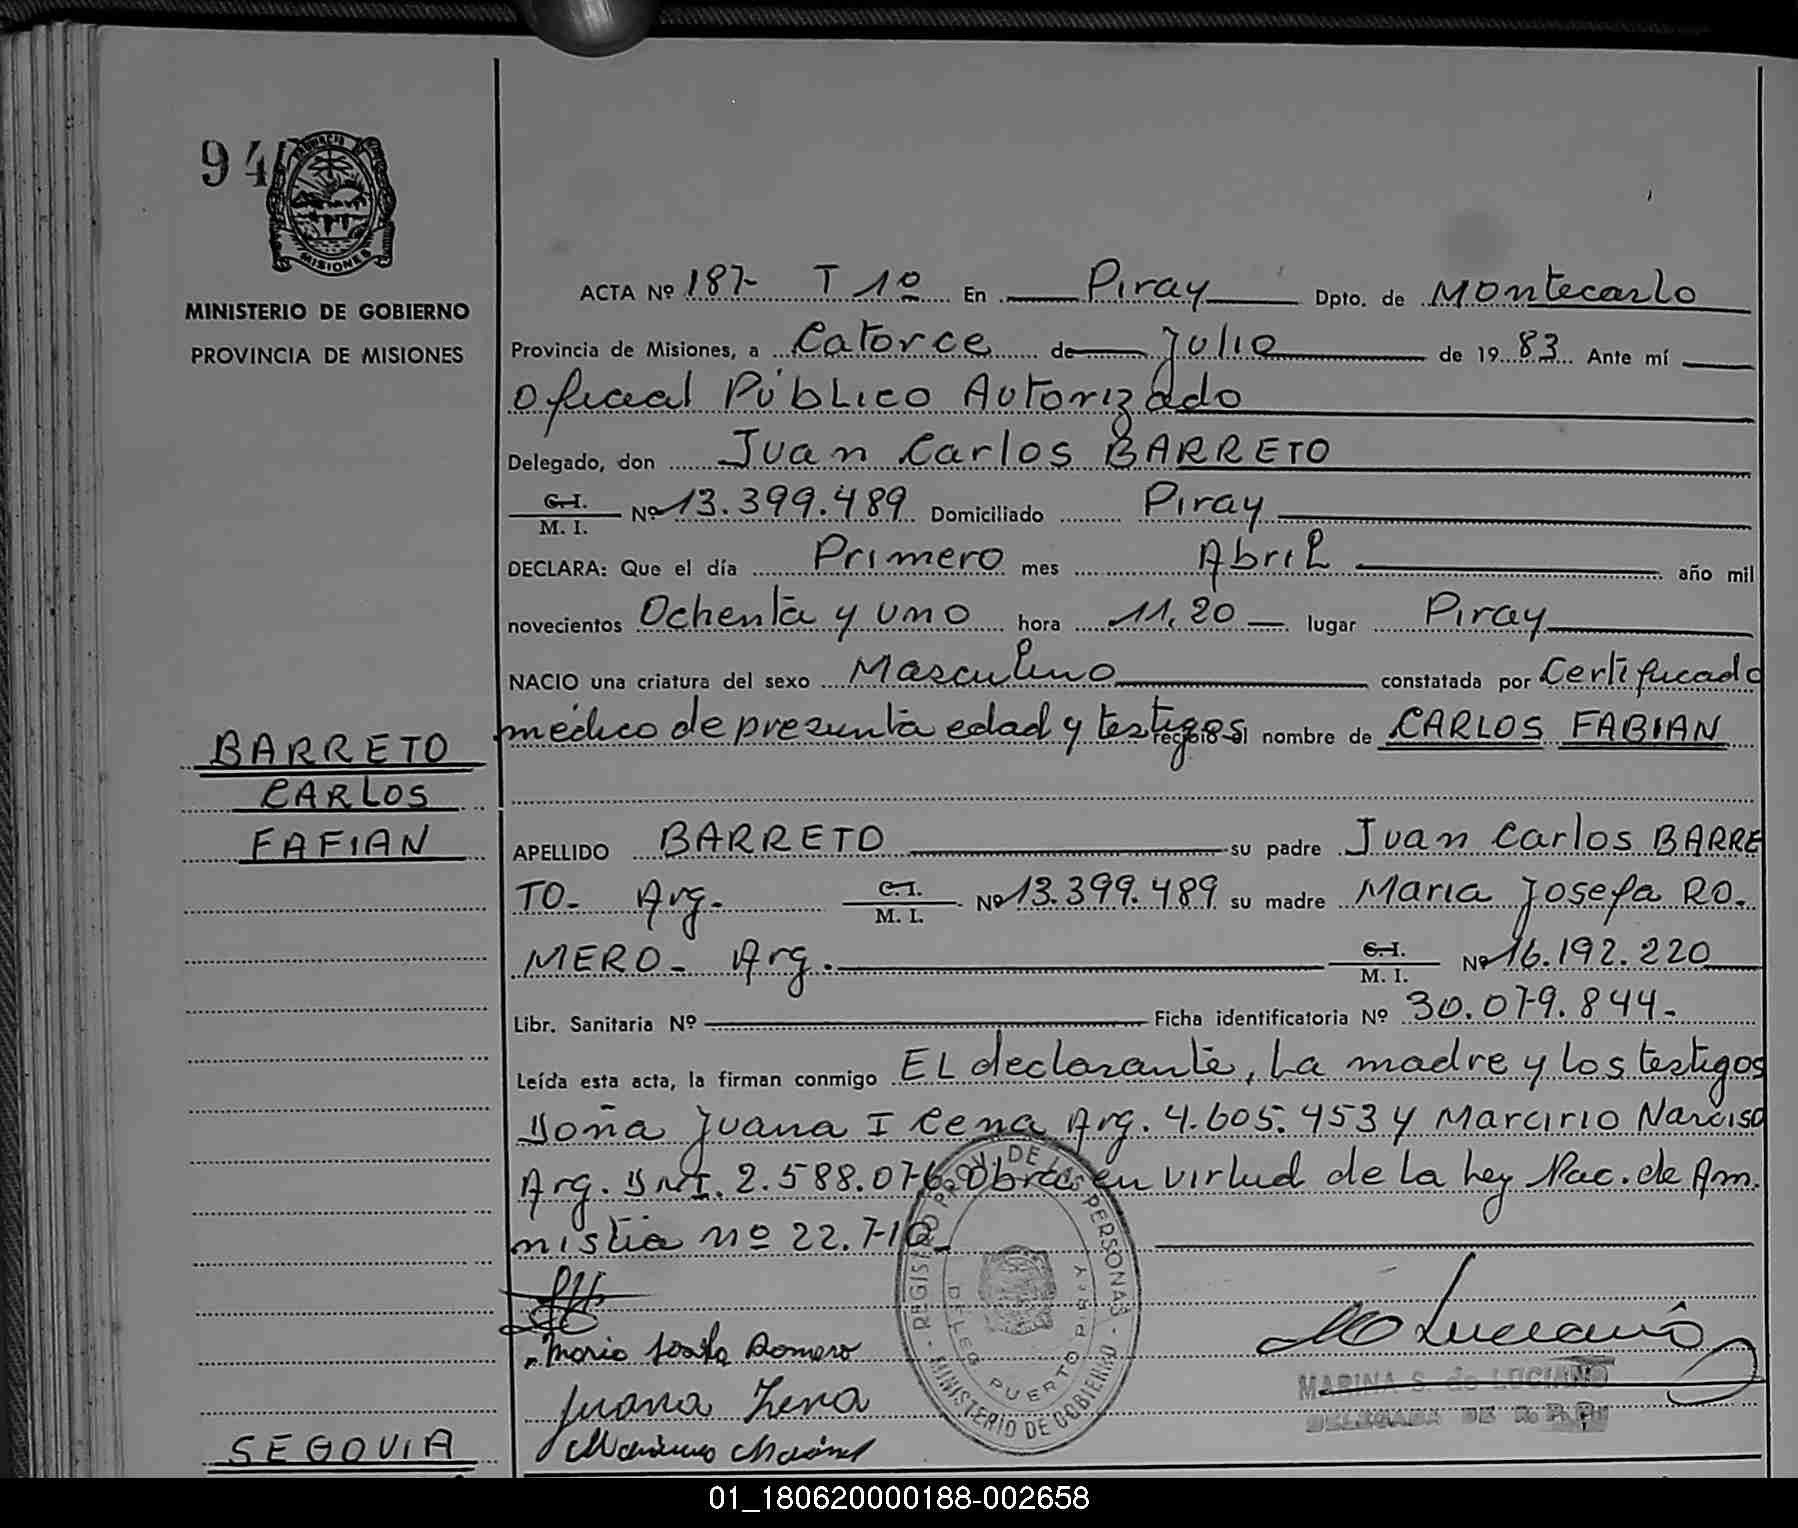 94
MISIONES
MINISTERIO DE GOBIERNO
PROVINCIA DE MISIONES
ACTA Nº 187- T 1º En Piray Dpto. de Montecarlo
Provincia de Misiones, a Catorce de Julio de 19 83 Ante mí
Oficial Público Autorizado
Delegado, don Juan Carlos BARRETO
C. I. / M. I. Nº 13.399.489 Domiciliado Piray
DECLARA: Que el día Primero mes Abril año mil
novecientos Ochenta y uno hora 11,20 lugar Piray
NACIO una criatura del sexo Masculino constatada por Certificado
médico de presunta edad y testigos recibió el nombre de CARLOS FABIAN
BARRETO
CARLOS
FAFIAN
APELLIDO BARRETO su padre Juan Carlos BARRE
TO- Arg. C. I. / M. I. Nº 13.399.489 su madre Maria Josefa RO-
MERO- Arg. C. I. / M. I. Nº 16.192.220
Libr. Sanitaria Nº Ficha identificatoria Nº 30.079.844-
Leída esta acta, la firman conmigo EL declarante, La madre y los testigos
Doña Juana I Cena Arg. 4.605.453 y Marcirio Narciso
Arg. DNI. 2.588.076 Obra en virtud de la Ley Nac. de Am.
nistia nº 22.710-
REGISTRO PROV. DE LAS PERSONAS
DELEG. PUERTO PIRAY
MINISTERIO DE GOBIERNO
Maria Josefa Romero
Juana Zena
MARINA S. de LUCIANO
DELEGADA DE R. P. P.
SEGOVIA
01_180620000188-002658